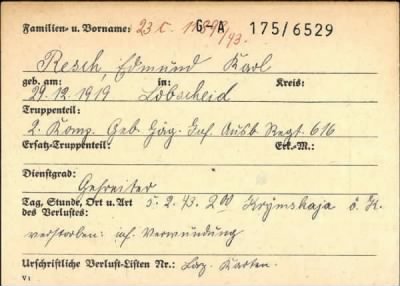 Familien- u. Vorname: 23 c. G-A 175/6529
Resch, Edmund Karl
geb. am: in: Kreis:
29.12.1919 Lobscheid
Truppenteil:
2. Komp. Geb. Jäg. Inf. Ausb. Regt. 616
Ersatz-Truppenteil: Erk.-M.:
Dienstgrad:
Gefreiter
Tag, Stunde, Ort u. Art 5.2.43. 2.00 Krymskaja
des Verlustes:
verstorben: inf. Verwundung
Urschriftliche Verlust-Listen Nr.: Laz. Karten.
V: